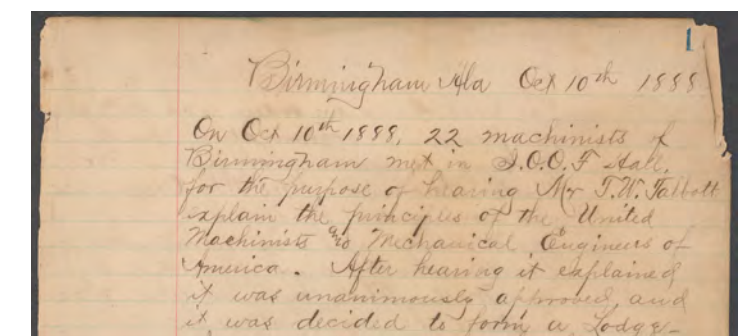 1
Birmingham Ala Oct 10th 1888
On Oct 10th 1888, 22 machinists of
Birmingham met in I.O.O.F Hall,
for the purpose of hearing Mr T.W. Talbott
explain the principles of the United
Machinists and Mechanical Engineers of
America. After hearing it explained
it was unanimously approved, and
it was decided to form a Lodge